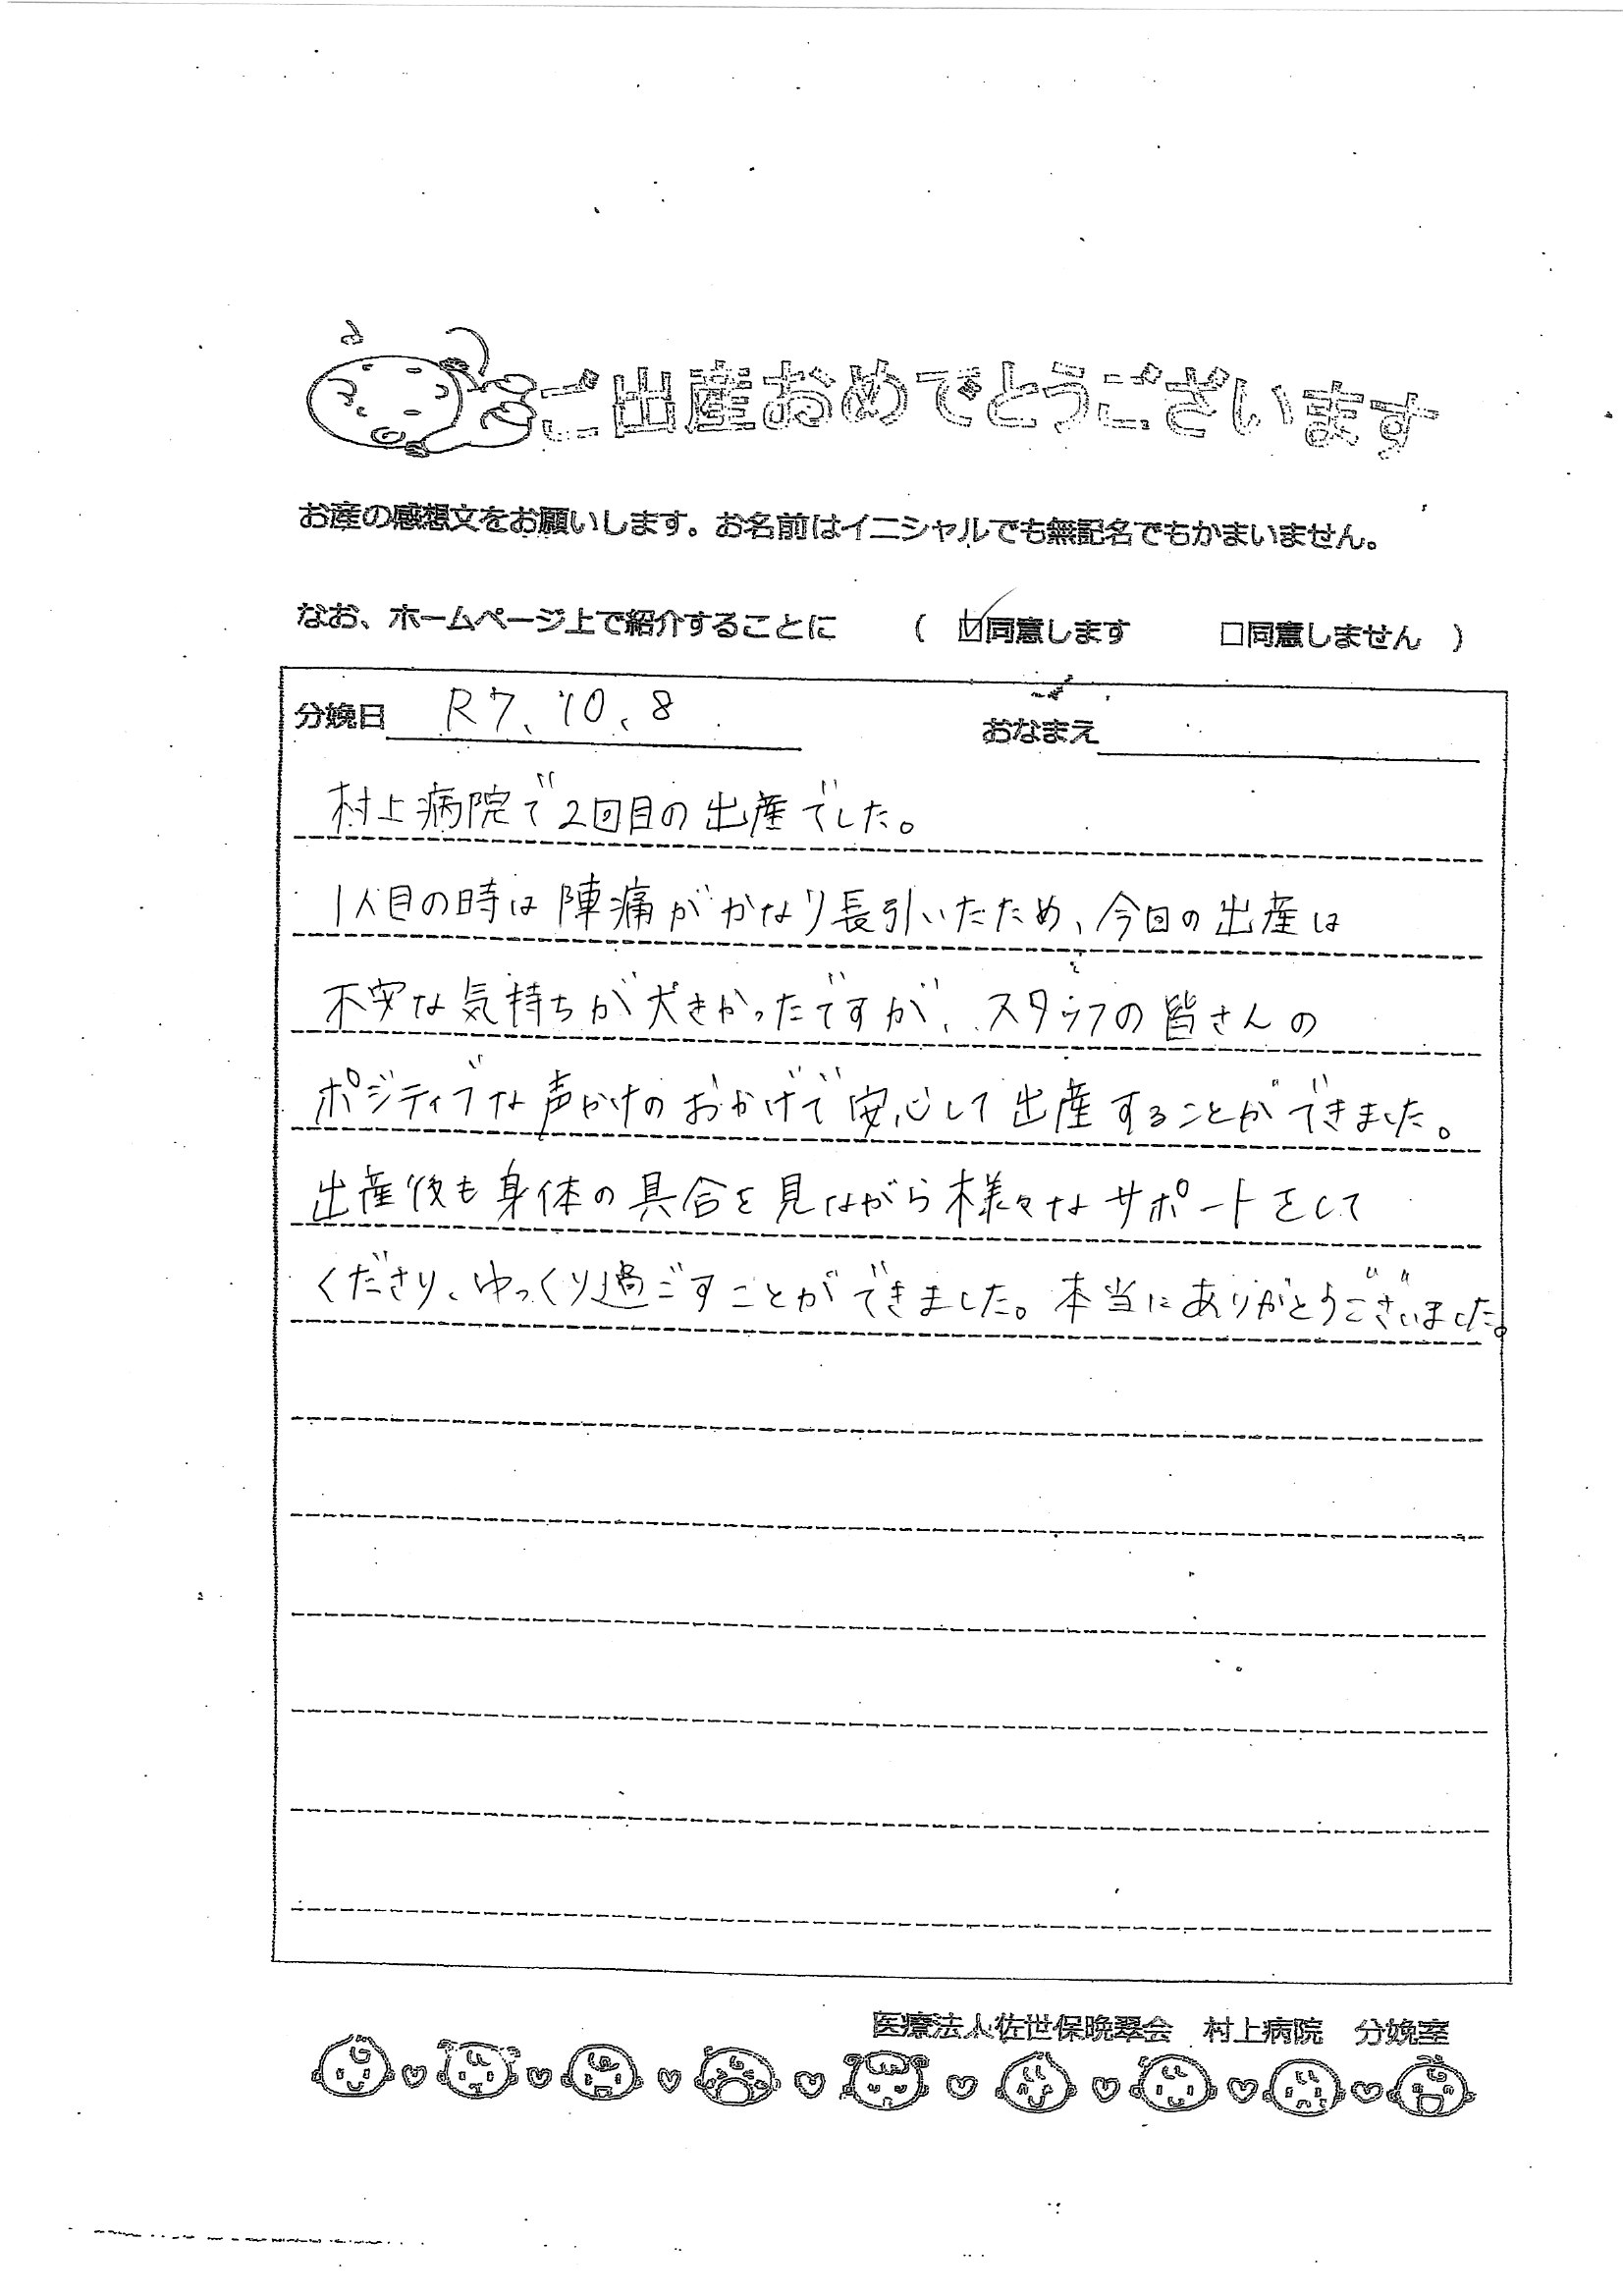 ご出産おめでとうございます
お産の感想文をお願いします。お名前はイニシャルでも無記名でもかまいません。
なお、ホームページ上で紹介することに （ ☑同意します □同意しません ）
分娩日 R7.10.8 おなまえ
村上病院で2回目の出産でした。
1人目の時は陣痛がかなり長引いたため、今回の出産は
不安な気持ちが大きかったですが、スタッフの皆さんの
ポジティブな声かけのおかげで安心して出産することができました。
出産後も身体の具合を見ながら様々なサポートをして
くださり、ゆっくり過ごすことができました。本当にありがとうございました。
医療法人佐世保晩翠会 村上病院 分娩室